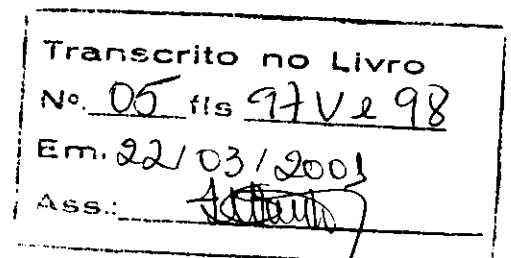 Transcrito no Livro
Nº. 05 fls 97 V e 98
Em. 22/03/2001
Ass.: